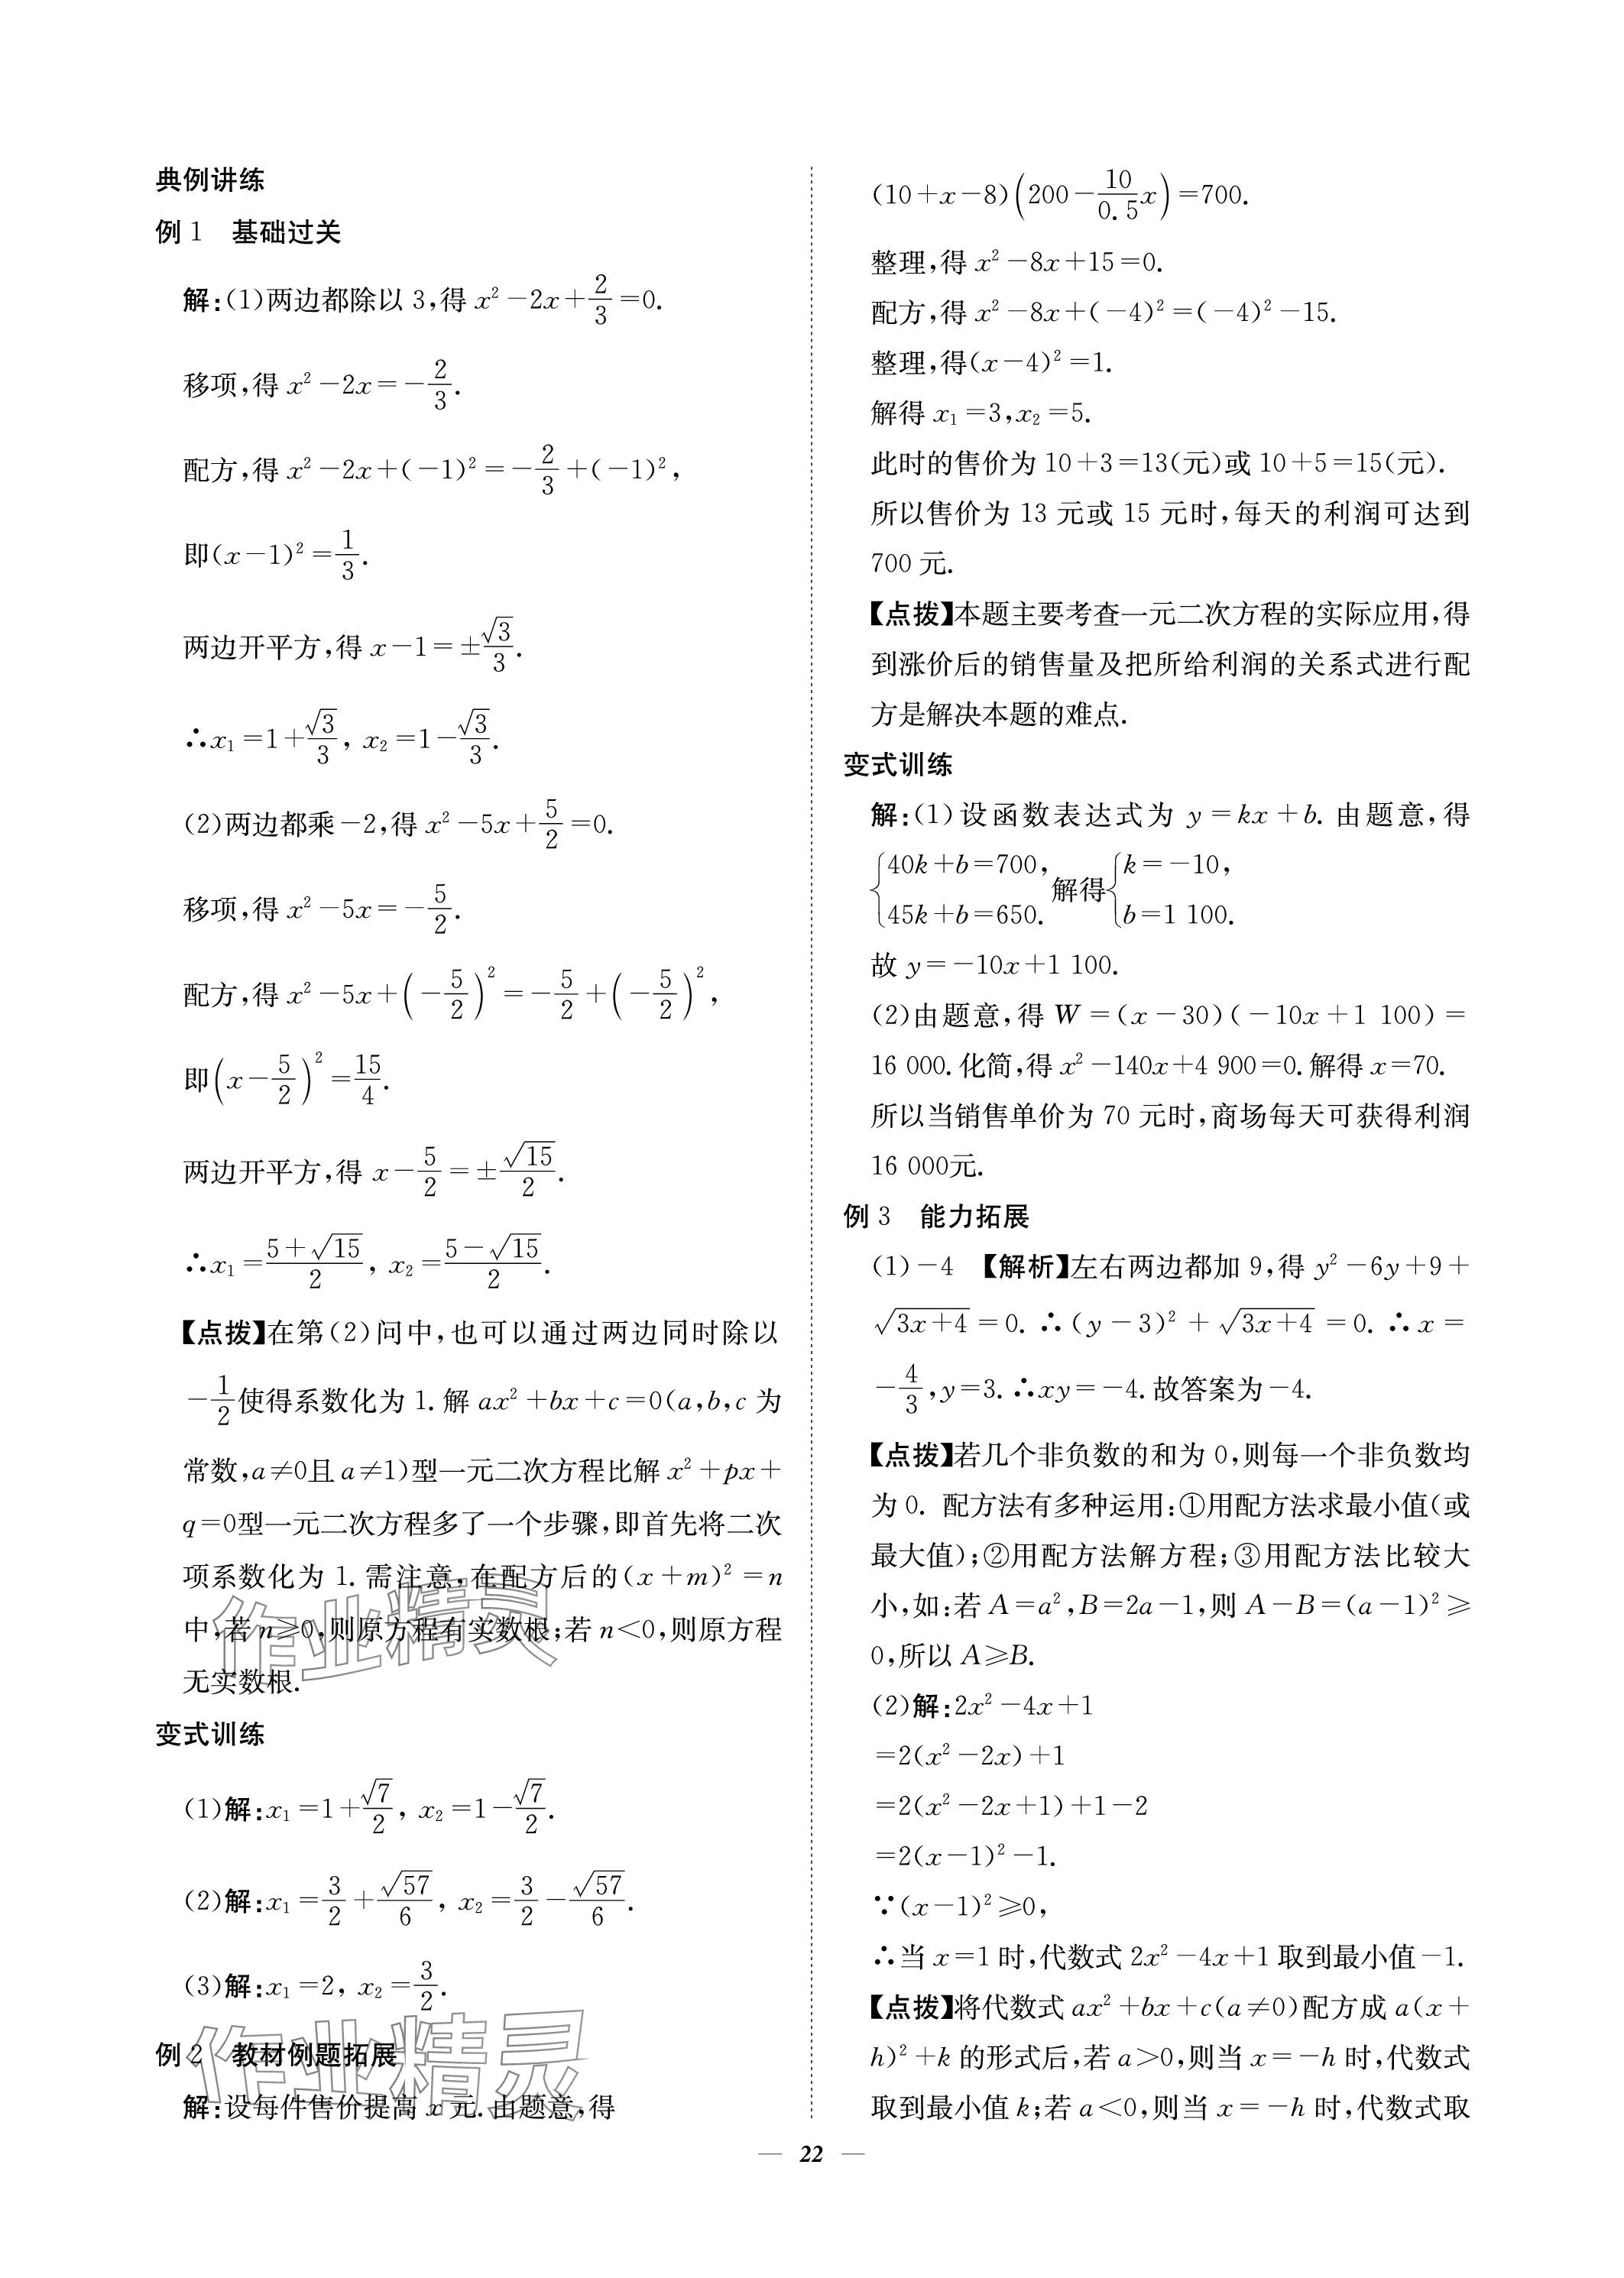 典例讲练
例 1　基础过关
解:(1)两边都除以 3,得 x²－2x＋2/3＝0.
移项,得 x²－2x＝－2/3.
配方,得 x²－2x＋(－1)²＝－2/3＋(－1)²,
即(x－1)²＝1/3.
两边开平方,得 x－1＝±√3/3.
∴x₁＝1＋√3/3, x₂＝1－√3/3.
(2)两边都乘－2,得 x²－5x＋5/2＝0.
移项,得 x²－5x＝－5/2.
配方,得 x²－5x＋(－5/2)²＝－5/2＋(－5/2)²,
即(x－5/2)²＝15/4.
两边开平方,得 x－5/2＝±√15/2.
∴x₁＝(5＋√15)/2, x₂＝(5－√15)/2.
【点拨】在第(2)问中,也可以通过两边同时除以
－1/2使得系数化为 1. 解 ax²＋bx＋c＝0(a,b,c 为
常数,a≠0且 a≠1)型一元二次方程比解 x²＋px＋
q＝0型一元二次方程多了一个步骤,即首先将二次
项系数化为 1. 需注意,在配方后的(x＋m)²＝n
中,若 n≥0,则原方程有实数根;若 n＜0,则原方程
无实数根.
作业精灵
变式训练
(1)解:x₁＝1＋√7/2, x₂＝1－√7/2.
(2)解:x₁＝3/2＋√57/6, x₂＝3/2－√57/6.
(3)解:x₁＝2, x₂＝3/2.
例 2　教材例题拓展
解:设每件售价提高 x 元.由题意,得
作业精灵
(10＋x－8)(200－10/0.5x)＝700.
整理,得 x²－8x＋15＝0.
配方,得 x²－8x＋(－4)²＝(－4)²－15.
整理,得(x－4)²＝1.
解得 x₁＝3,x₂＝5.
此时的售价为 10＋3＝13(元)或 10＋5＝15(元).
所以售价为 13 元或 15 元时,每天的利润可达到
700 元.
【点拨】本题主要考查一元二次方程的实际应用,得
到涨价后的销售量及把所给利润的关系式进行配
方是解决本题的难点.
变式训练
解:(1)设函数表达式为 y＝kx＋b. 由题意,得
{40k＋b＝700, 45k＋b＝650. 解得{k＝－10, b＝1 100.
故 y＝－10x＋1 100.
(2)由题意,得 W＝(x－30)(－10x＋1 100)＝
16 000.化简,得 x²－140x＋4 900＝0.解得 x＝70.
所以当销售单价为 70 元时,商场每天可获得利润
16 000元.
例 3　能力拓展
(1)－4　【解析】左右两边都加 9,得 y²－6y＋9＋
√(3x＋4)＝0. ∴(y－3)²＋√(3x＋4)＝0. ∴x＝
－4/3,y＝3.∴xy＝－4.故答案为－4.
【点拨】若几个非负数的和为 0,则每一个非负数均
为 0. 配方法有多种运用:①用配方法求最小值(或
最大值);②用配方法解方程;③用配方法比较大
小,如:若 A＝a²,B＝2a－1,则 A－B＝(a－1)²≥
0,所以 A≥B.
(2)解:2x²－4x＋1
＝2(x²－2x)＋1
＝2(x²－2x＋1)＋1－2
＝2(x－1)²－1.
∵(x－1)²≥0,
∴当 x＝1 时,代数式 2x²－4x＋1 取到最小值－1.
【点拨】将代数式 ax²＋bx＋c(a≠0)配方成 a(x＋
h)²＋k 的形式后,若 a＞0,则当 x＝－h 时,代数式
取到最小值 k;若 a＜0,则当 x＝－h 时,代数式取
— 22 —